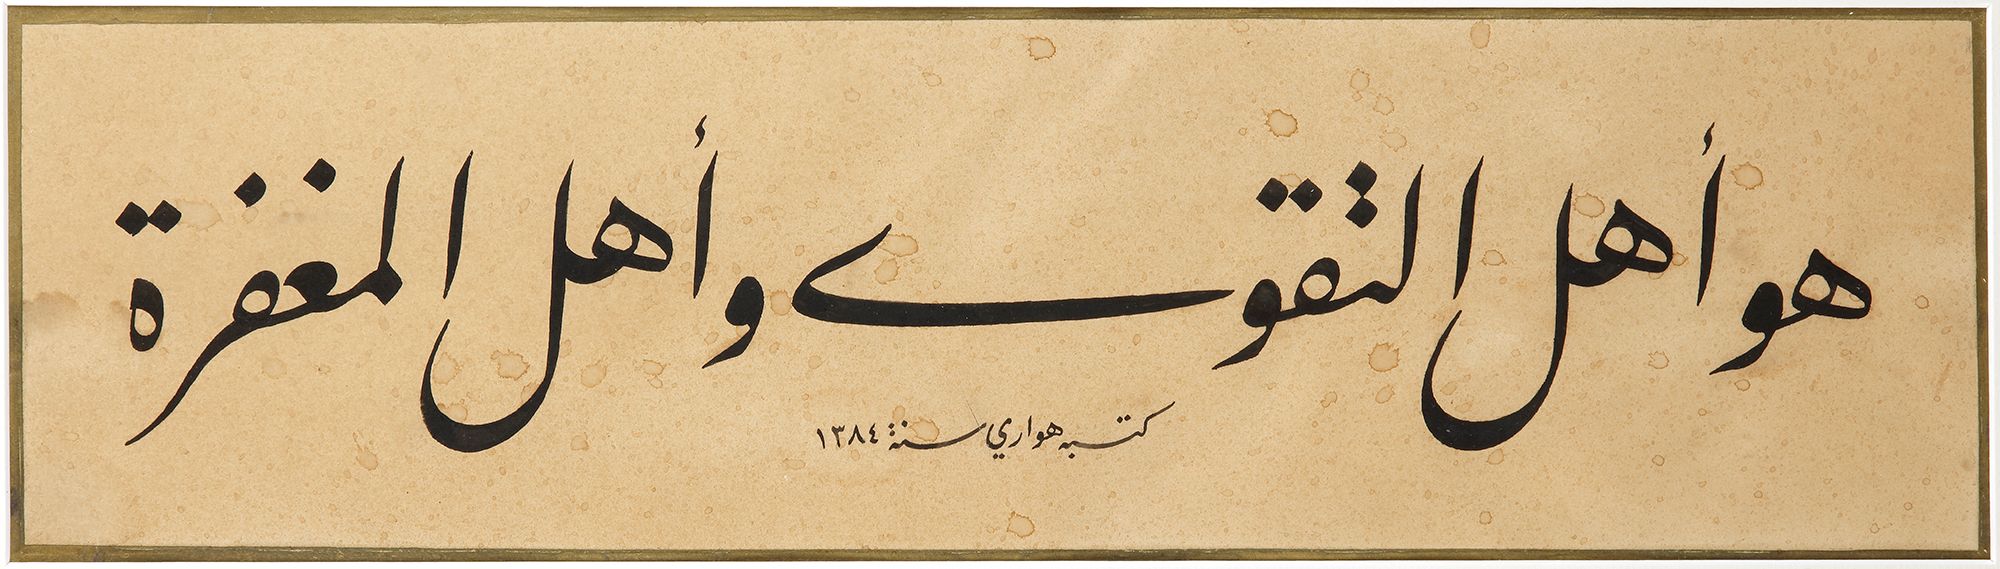 هو أهل التقوے وأهل المغفرة
كتبه هواري سنة ١٣٨٤